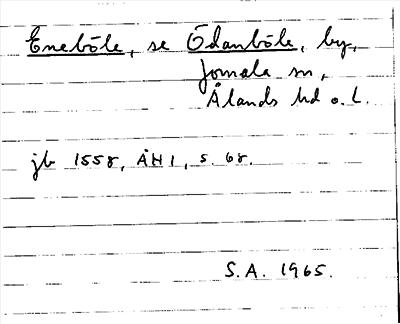 Eneböle, se Ödanböle, by,
Jomala sn,
Ålands hd o. L.
jb 1558, ÅH 1, s. 68.
S.A. 1965.